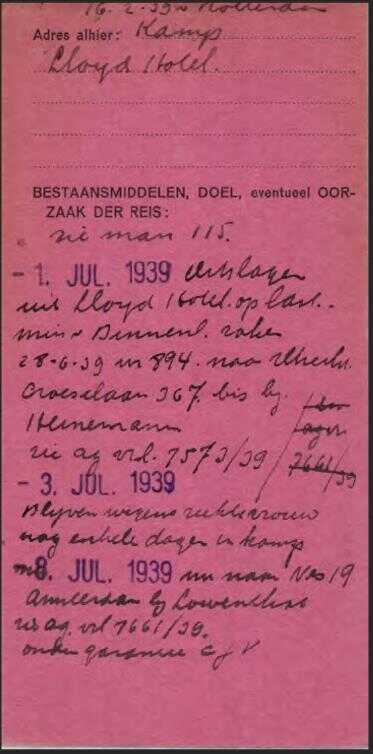 16-2-39 Rotterdam
Adres alhier: Kamp
Lloyd Hotel.
BESTAANSMIDDELEN, DOEL, eventueel OOR-
ZAAK DER REIS:
zie man 115.
- 1. JUL. 1939 Ontslagen
uit Lloyd Hotel. op last.
min v Binnenl. zaken
28-6-39 nr 894. naar Utrecht.
Croeselaan 367. bis bij
Heinemann
zie ag vrl. 7573/39 / 7661/39
- 3. JUL. 1939
Blijven wegens ziekte vrouw
nog enkele dagen in kamp
8. JUL. 1939 nu naar Nes 19
Amsterdam bij Lowenthal
zie ag. vrl 7661/39.
onder garantie C J V